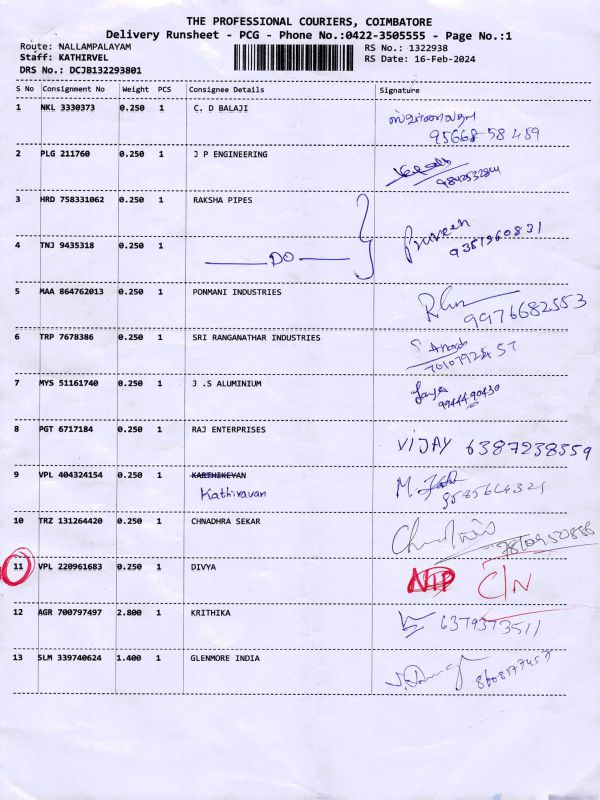 THE PROFESSIONAL COURIERS, COIMBATORE
Delivery Runsheet - PCG - Phone No.:0422-3505555 - Page No.:1
Route: NALLAMPALAYAM RS No.: 1322938
Staff: KATHIRVEL RS Date: 16-Feb-2024
DRS No.: DCJB132293801
S No Consignment No Weight PCS Consignee Details Signature
1 NKL 3330373 0.250 1 C. D BALAJI
95668-58459
2 PLG 211760 0.250 1 J P ENGINEERING
9842532844
3 HRD 758331062 0.250 1 RAKSHA PIPES
Praveen
9351960831
4 TNJ 9435318 0.250 1
DO
5 MAA 864762013 0.250 1 PONMANI INDUSTRIES
9976682553
6 TRP 7678386 0.250 1 SRI RANGANATHAR INDUSTRIES
S Anand
7 MYS 51161740 0.250 1 J .S ALUMINIUM
9944490430
8 PGT 6717184 0.250 1 RAJ ENTERPRISES
VIJAY 6387238359
9 VPL 404324154 0.250 1 KARTHIKEYAN
Kathiravan
M.
10 TRZ 131264420 0.250 1 CHNADHRA SEKAR
7810950888
11 VPL 220961683 0.250 1 DIVYA
NTP C/N
12 AGR 700797497 2.800 1 KRITHIKA
6379373511
13 SLM 339740624 1.400 1 GLENMORE INDIA
8608177457